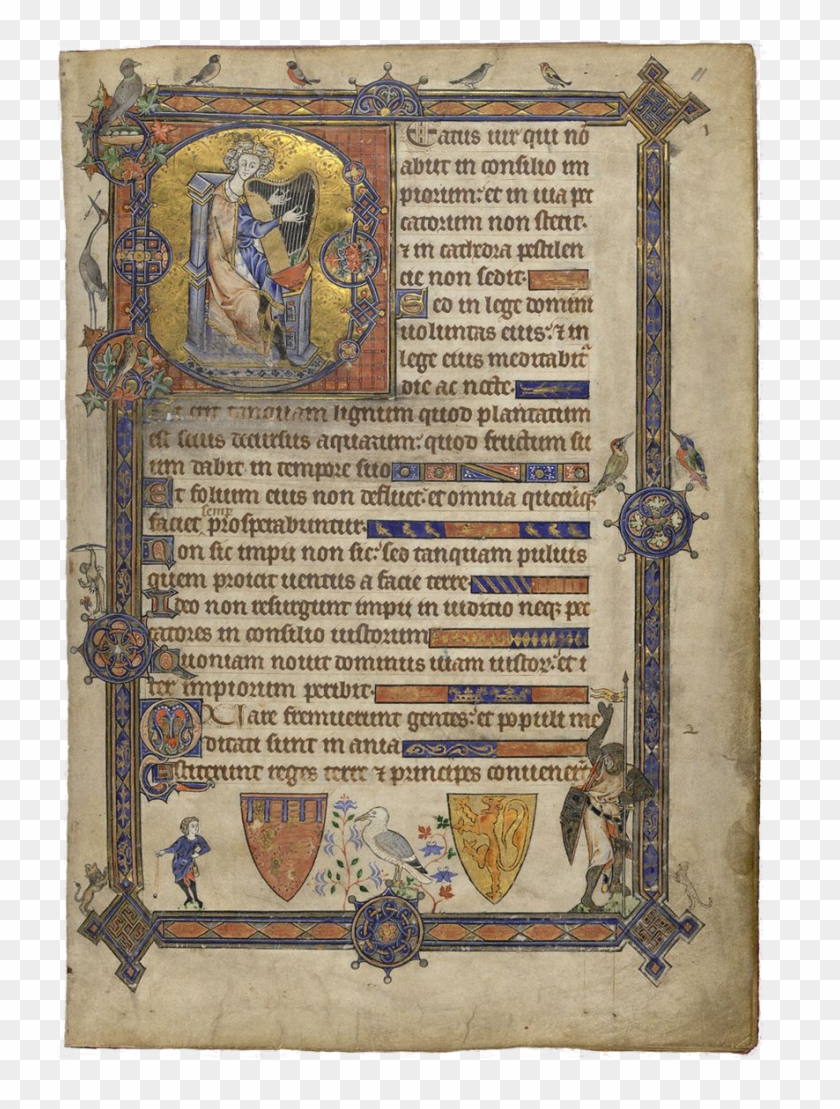 Eatus uir qui no
abiit in consilio im
piorum: et in uia pec
catorum non stetit.
⁊ in cathedra pestilen
cie non sedit.
Sed in lege domini
uoluntas eius: ⁊ in
lege eius meditabit
die ac nocte.
Et erit tanquam lignum quod plantatum
est secus decursus aquarum: quod fructum su
um dabit in tempore suo
Et folium eius non defluet: et omnia quecūqꝫ
semp
faciet prosperabuntur.
Non sic impii non sic: sed tanquam puluis
quem proicit uentus a facie terre
Ideo non resurgunt impii in iudicio neqꝫ pec
catores in consilio iustorum
Quoniam nouit dominus uiam iustor: et i
ter impiorum peribit.
Quare fremuerunt gentes: et populi me
ditati sunt inania
Astiterunt reges terre ⁊ principes conuener
1
2